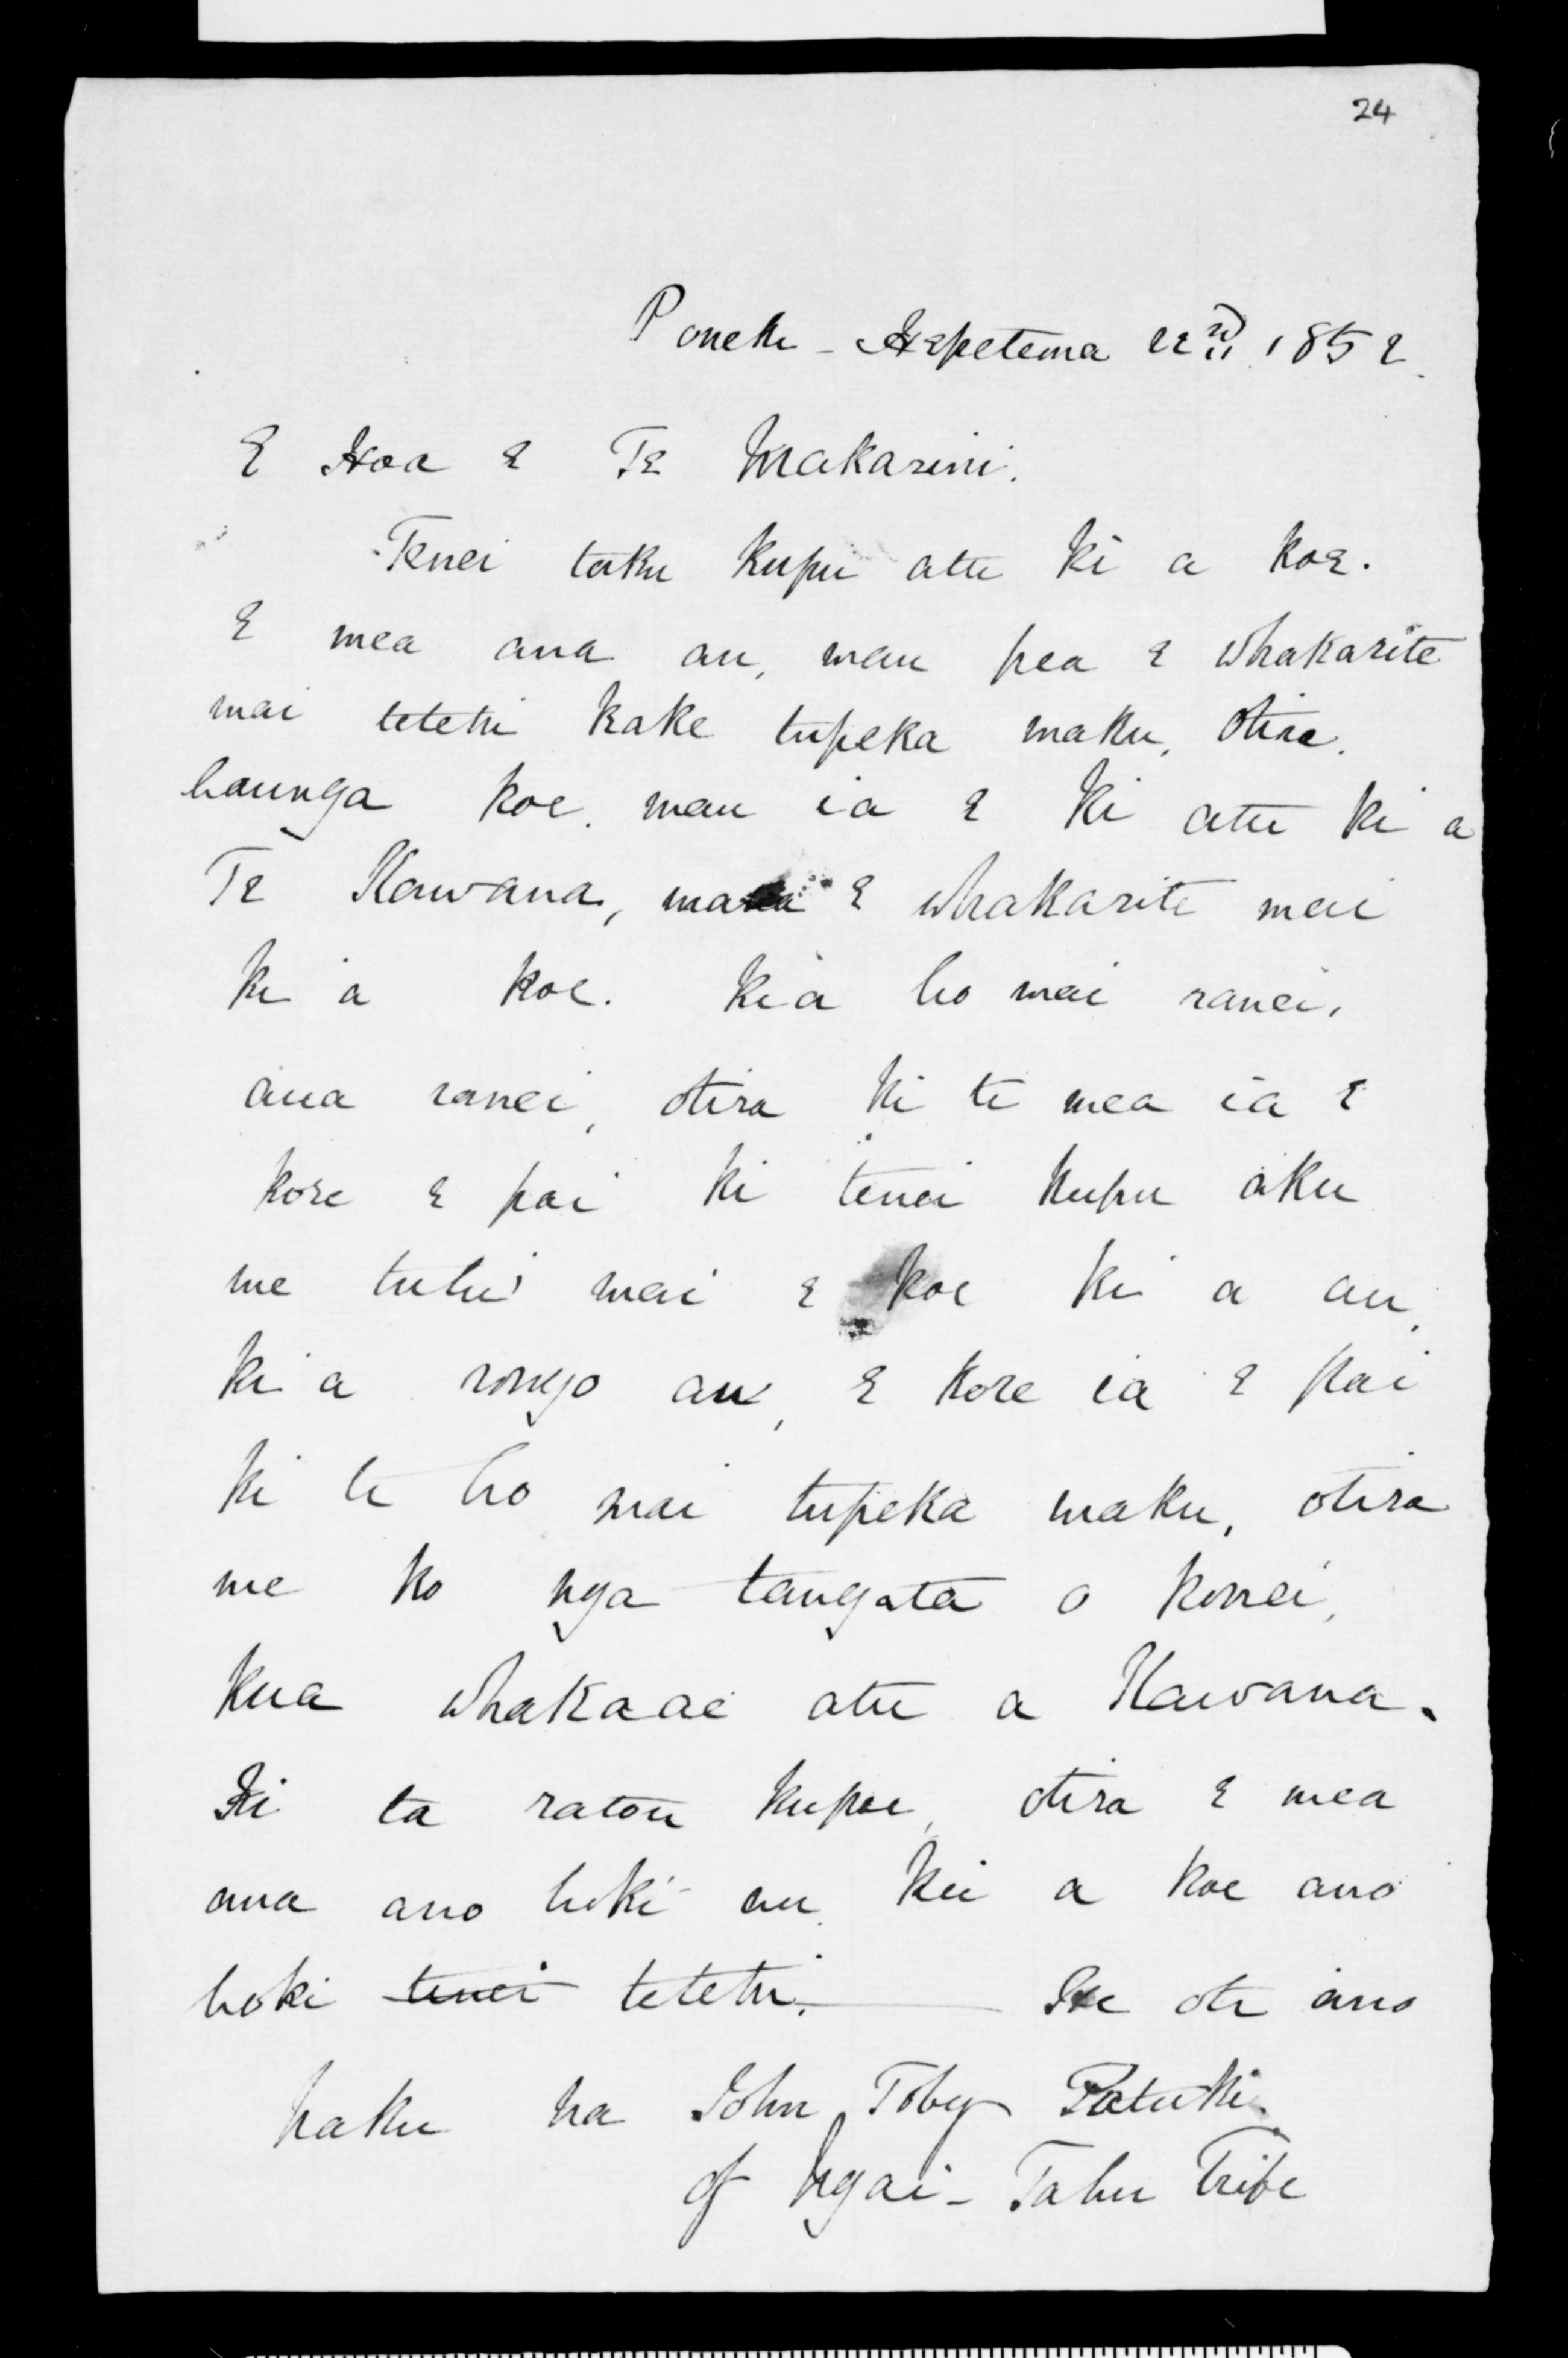 24
Poneke - Hepetema 22nd 1852.
E Hoa E Te Makarini.
Tenei taku kupu atu ki a koe.
E mea ana au, mau pea e whakarite
mai tetehi kake tupeka maku, otira.
haunga koe. mau ia e ki atu ki a
Te Kawana, mana e whakarite mai
ki a koe. kia ho mai ranei,
aua ranei, otira ki te mea ia e
kore e pai ki tenei kupu aku
me tuhi mai e koe ki a au,
kia rongo au, e kore ia e pai
ki te ho mai tupeka maku, otira
me ko nga tangata o konei,
kua whakaae atu a Kawana.
Ki ta ratou kupu, otira e mea
ana ano hoki au. kei a koe ano
hoki tenei tetehi. Heoti ano
Naku na John Toby Patuki.
of Ngai-Tahu Tribe